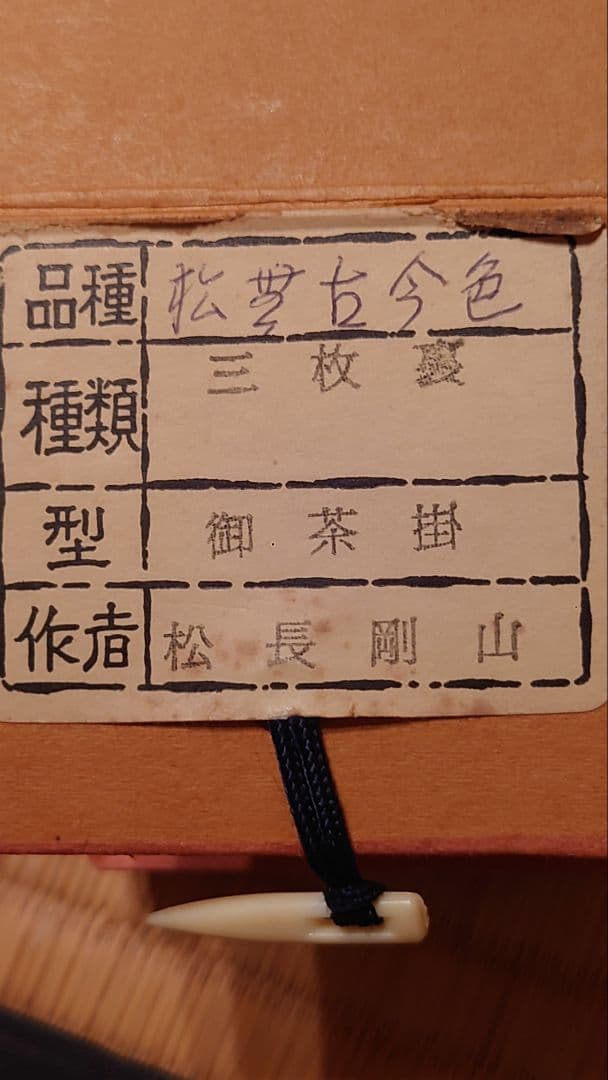 品種 松無古今色
種類 三枚裏
型 御茶掛
作者 松長剛山